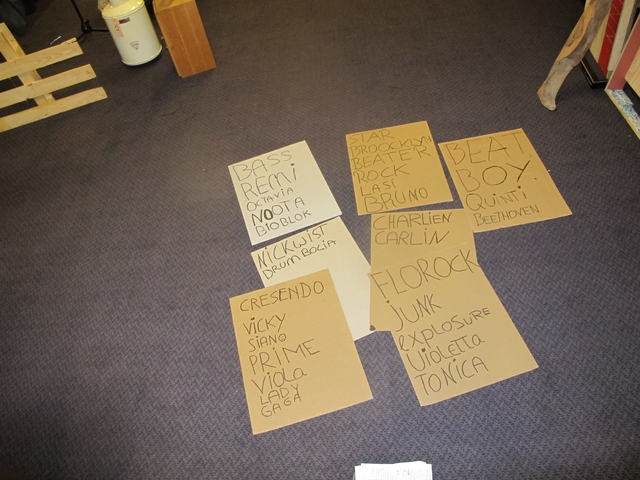 BASS
REMi
OCTAViA
NOOTA
BiOBLOK
STAR
BROOCKLYN
BEATER
ROCK
LASi
BRUNO
BEAT
BOY.
QUiNTi
BEETHOVEN
CHARLiEN
CARLiN
NiCKWiST
DRUM BOLiA
CRESENDO
ViCKY
SiANO
PRiME
ViOLa
LADY
GAGA
FLOROCK
jUNK
eXPLOSURE
UiOLetta
TONiCA